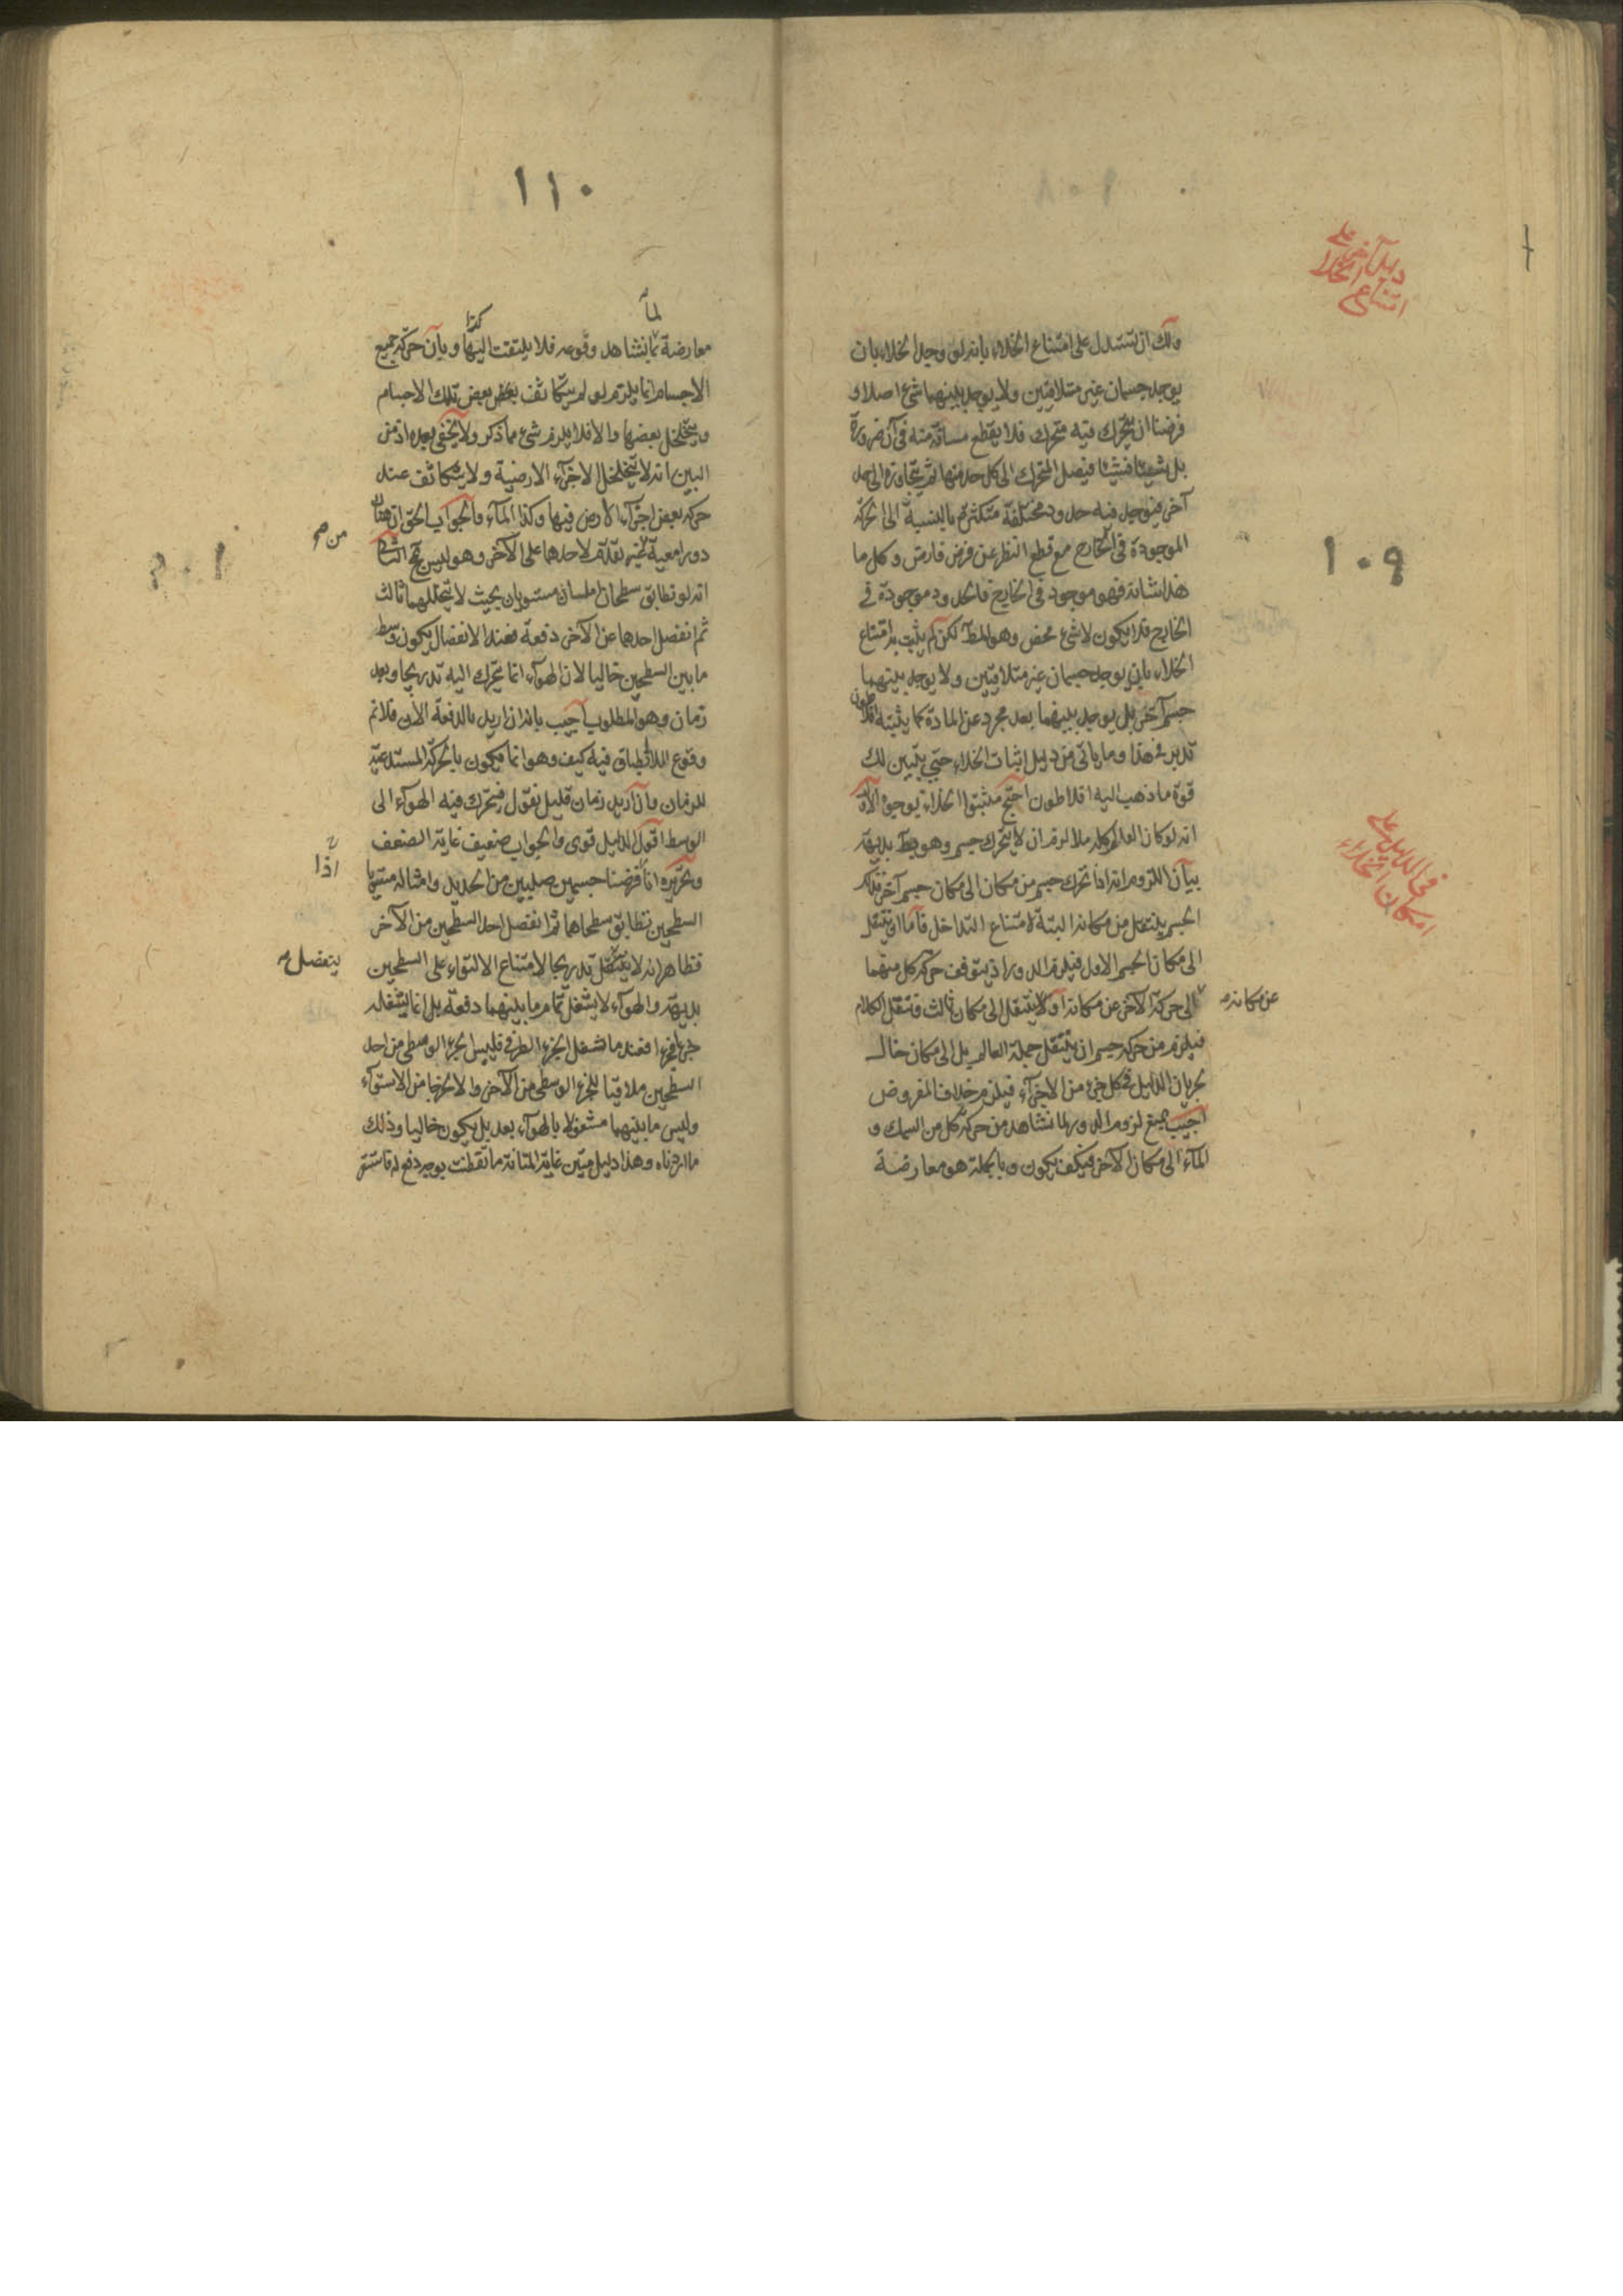 ١٠٩
دليل آخر على
امتناع الخلا
ولك ان تستدل على امتناع الخلاء بانه لو وجد الخلاء بان
يوجد جسمان غير متلاقيين ولا يوجد بينهما شئ اصلا و
فرضنا ان يتحرك فيه متحرك فلا يقطع مسافة منه في آن ضرورة
بل شيئا فشيئا فيصل المتحرك الى كل حد منها ثم يتجاوزه الى حد
آخر فيوجد فيه حدود مختلفة متكثرة بالنسبة الى الحركة
الموجودة في الخارج مع قطع النظر عن فرض فارض وكل ما
هذا شانه فهو موجود في الخارج فالحدود موجودة في
الخارج فلا يكون لا شئ محض وهو المط لكن لم يثبت به امتناع
الخلاء بان يوجد جسمان غير متلاقيين ولا يوجد بينهما
جسم آخر بل يوجد بينهما بعد مجرد عن المادة كما يثبته افلاطون
تدبر في هذا وما ياتى من دليل اثبات الخلاء حتى يتبين لك
قوة ما ذهب اليه افلاطون احتج مثبتوا الخلاء بوجوه الاول
في الدليل على
امكان الخلاء
انه لو كان العالم كله ملا لزم ان لا يتحرك جسم وهو بط بديهة
بيان اللزوم انه اذا تحرك جسم من مكان الى مكان جسم آخر فذلك
الجسم ينتقل من مكانه البتة لامتناع التداخل فاما ان ينتقل
الى مكان الجسم الاول فيلزم الدور اذ يتوقف حركة كل منهما
الى حركة الآخر عن مكانه او لا ينتقل الى مكان ثالث فننقل الكلام
عن مكانه
فيلزم من حركة جسم ان ينتقل جملة العالم بل الى مكان خال
بجريان الدليل في كل جزء من الاجزاء فيلزم خلاف المفروض
اجيب بمنع لزوم الدور لما نشاهد من حركة كل من السمك و
الماء الى مكان الآخر فكيف يكون وبالجملة هو معارضة
١١٠
لما
معارضة بما نشاهد وقوعه فلا يلتفت اليها وبان حركة جميع
الاجسام انما يلزم لو لم يتكاثف بعض بعض تلك الاجسام
ويتخلخل بعضها والا فلا يلزم شئ مما ذكر ولا يخفى بعده اذ من
البين انه لا يتخلخل الاجزاء الارضية ولا يتكاثف عند
حركة بعض اجزاء الارض فيها وكذا الماء والجواب الحق ان هنا
دورا معية لا لاحدها على الآخر وهو ليس بمح الثاني
من
انه لو تطابق سطحان املسان مستويان بحيث لا يتخللهما ثالث
ثم انفصل احدهما عن الآخر دفعة فعند الانفصال يكون وسط
ما بين السطحين خاليا لان الهواء انما يتحرك اليه تدريجا وبعد
زمان وهو المطلوب اجيب بانه ان اريد بالدفعة الآن فلا نم
وقوع اللاانطباق فيه كيف وهو انما يكون بالحركة المستدعية
للزمان وان اريد زمان قليل نقول فيتحرك فيه الهواء الى
الوسط اقول الدليل قوى والجواب ضعيف غاية الضعف
وتحريره انا فرضنا جسمين صلبين من الحديد وامثاله مستويا
اذا
السطحين تطابق سطحاهما ثم انفصل احد السطحين من الآخر
فظاهر انه لا ينتقل تدريجا لامتناع الالتواء على السطحين
ينفصل
بديهة والهواء لا يشغل تمام ما بينهما دفعة بل انما يشغله
جزءا فجزءا فعند ما شغل الجزء الطرفى فليس الجزء الوسطى من احد
السطحين ملاقيا للجزء الوسطى من الآخر والا لخرجا من الاستواء
وليس ما بينهما مشغولا بالهواء بعد بل يكون خاليا وذلك
ما اردناه وهذا دليل متين غاية المتانة ما تفطنت بوجه دفع له فاستقر